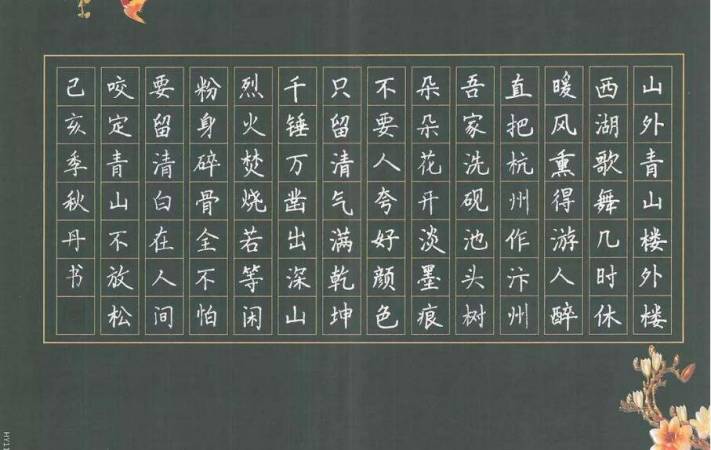 山外青山楼外楼
西湖歌舞几时休
暖风熏得游人醉
直把杭州作汴州
吾家洗砚池头树
朵朵花开淡墨痕
不要人夸好颜色
只留清气满乾坤
千锤万凿出深山
烈火焚烧若等闲
粉身碎骨全不怕
要留清白在人间
咬定青山不放松
己亥季秋丹书